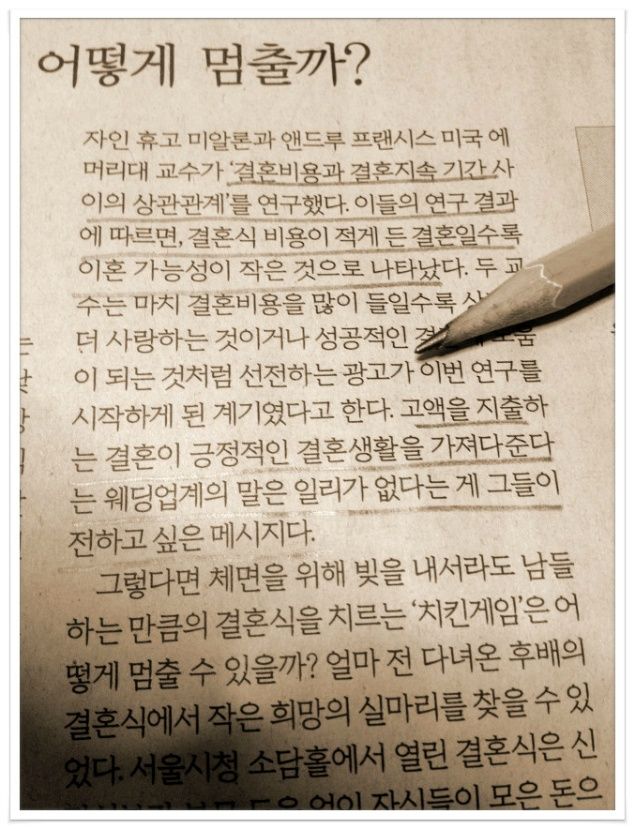 어떻게 멈출까?
자인 휴고 미알론과 앤드루 프랜시스 미국 에
머리대 교수가 ‘결혼비용과 결혼지속 기간 사
이의 상관관계’를 연구했다. 이들의 연구 결과
에 따르면, 결혼식 비용이 적게 든 결혼일수록
이혼 가능성이 작은 것으로 나타났다. 두 교
수는 마치 결혼비용을 많이 들일수록
더 사랑하는 것이거나 성공적인
이 되는 것처럼 선전하는 광고가 이번 연구를
시작하게 된 계기였다고 한다. 고액을 지출하
는 결혼이 긍정적인 결혼생활을 가져다준다
는 웨딩업계의 말은 일리가 없다는 게 그들이
전하고 싶은 메시지다.
그렇다면 체면을 위해 빚을 내서라도 남들
하는 만큼의 결혼식을 치르는 ‘치킨게임’은 어
떻게 멈출 수 있을까? 얼마 전 다녀온 후배의
결혼식에서 작은 희망의 실마리를 찾을 수 있
었다. 서울시청 소담홀에서 열린 결혼식은 신
부모 돈은 없이 자식들이 모은 돈으